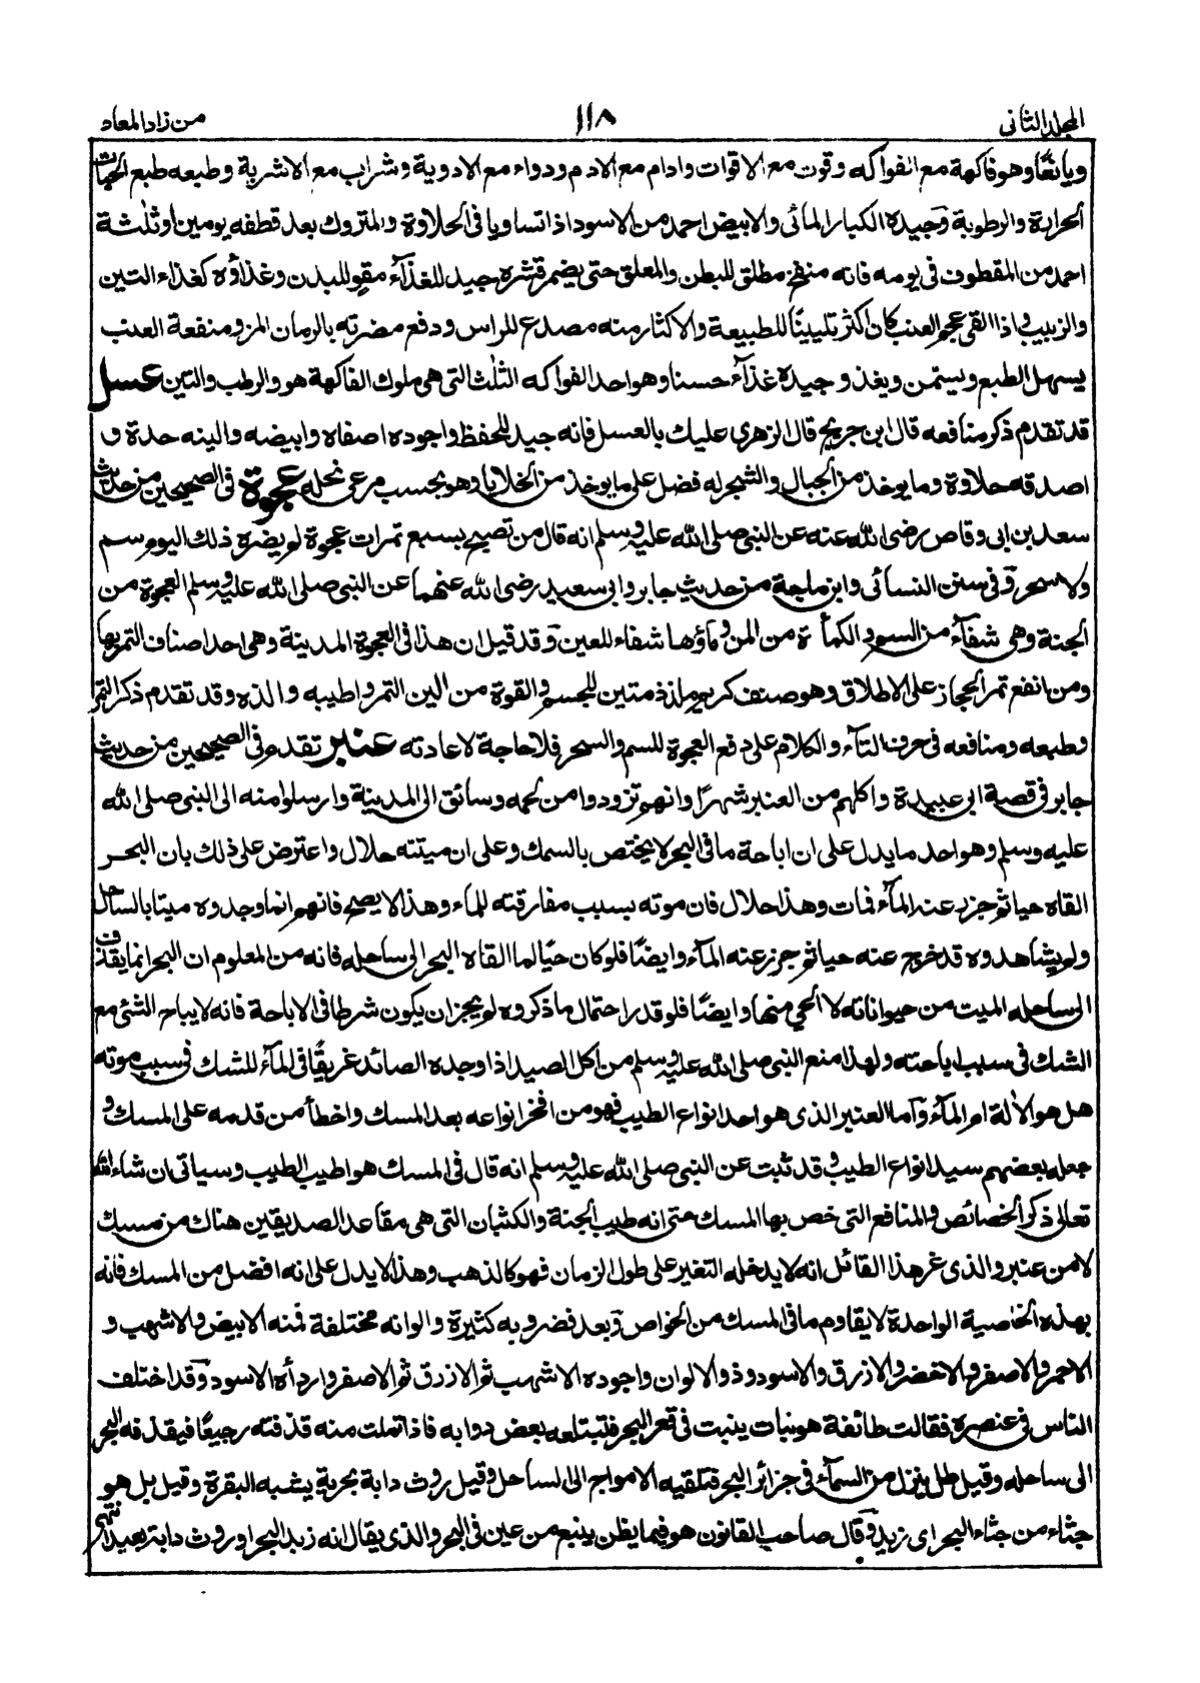 المجلد الثانی ۱۱۸ من زاد المعاد
ويانعًا وهو فاكهة مع الفواكه وقوت مع الاقوات وادام مع الادم ودواء مع الادوية وشراب مع الاشربة وطبعه طبع الحبات
الحرارة والرطوبة وجيده الكبار المائى والابيض احمد من الاسود اذا تساويا فى الحلاوة والمتروك بعد قطفه يومين او ثلثة
احمد من المقطوف فى يومه فانه منفخ مطلق للبطن والمعلق حتى يضمر قشره جيد للغذآء مقوٍ للبدن وغذاؤه كغذاء التين
والزبيب واذا القى عجم العنب كان اكثر تليينًا للطبيعة والاكثار منه مصدع للراس ودفع مضرته بالرمان المز ومنفعة العنب
يسهل الطبع ويسمن ويغذو جيده غذآء حسنا وهو احد الفواكه الثلث التى هى ملوك الفاكهة هو والرطب والتين عسل
قد تقدم ذكر منافعه قال ابن جريج قال الزهرى عليك بالعسل فانه جيد للحفظ واجوده اصفاه وابيضه والينه حدة و
اصدقه حلاوة وما يوخذ من الجبال والشجر له فضل على ما يوخذ من الخلايا وهو بحسب مرعى نحله عجوة فى الصحيحين من حديث
سعد بن ابى وقاص رضى الله عنه عن النبى صلى الله عليه وسلم انه قال من تصبح بسبع تمرات عجوة لم يضره ذلك اليوم سم
ولا سحر وفى سنن النسائى وابن ماجة من حديث جابر وابى سعيد رضى الله عنهما عن النبى صلى الله عليه وسلم العجوة من
الجنة وهى شفآء من السم والكمأة من المن وماؤها شفاء للعين وقد قيل ان هذا فى العجوة المدينة وهى احد اصناف التمر بها
ومن انفع تمر الحجاز على الاطلاق وهو صنف كريم ملذذ متين للجسم والقوة من الين التمر واطيبه والذه وقد تقدم ذكر التمر
وطبعه ومنافعه فى حرف التآء والكلام على دفع العجوة للسم والسحر فلا حاجة لاعادته عنبر تقدم فى الصحيحين من حديث
جابر فى قصة ابى عبيدة واكلهم من العنبر شهرًا وانهم تزودوا من لحمه وسائق الى المدينة وارسلوا منه الى النبى صلى الله
عليه وسلم وهو احد ما يدل على ان اباحة ما فى البحر لا يختص بالسمك وعلى ان ميتته حلال واعترض على ذلك بان البحر
القاه حيا ثم جزر عنه المآء فمات وهذا حلال فان موته بسبب مفارقته للماء وهذا لا يصح فانهم انما وجدوه ميتا بالساحل
ولم يشاهدوه قد خرج عنه حيا ثم جزر عنه المآء وايضًا فلو كان حيًا لما القاه البحر الى ساحله فانه من المعلوم ان البحر انما يقذف
الى ساحله الميت من حيواناته لا الحي منها وايضًا فلو قدر احتمال ما ذكروه لم يجز ان يكون شرطا فى الاباحة فانه لا يباح الشئ مع
الشك فى سبب اباحته ولهذا منع النبى صلى الله عليه وسلم من اكل الصيد اذا وجده الصائد غريقًا فى المآء للشك فى سبب موته
هل هو الألة ام المآء وآما العنبر الذى هو احد انواع الطيب فهو من افخر انواعه بعد المسك واخطأ من قدمه على المسك و
جعله بعضهم سيد انواع الطيب وقد ثبت عن النبى صلى الله عليه وسلم انه قال فى المسك هو اطيب الطيب وسياتى ان شاء الله
تعالى ذكر الخصائص والمنافع التى خص بها المسك حتى انه طيب الجنة والكثبان التى هى مقاعد الصديقين هناك من مسك
لا من عنبر والذى غر هذا القائل انه لا يدخله التغير على طول الزمان فهو كالذهب وهذا لا يدل على انه افضل من المسك فانه
بهذه الخاصية الواحدة لا يقاوم ما فى المسك من الخواص وبعد فضروبه كثيرة والوانه مختلفة فمنه الابيض والاشهب و
الاحمر والاصفر والاخضر والازرق والاسود وذو الالوان واجوده الاشهب ثم الازرق ثم الاصفر واردأه الاسود وقد اختلف
الناس فى عنصره فقالت طائفة هو نبات ينبت فى قعر البحر فتبتلعه بعض دوابه فاذا تملت منه قذفته رجيعًا فيقذفه البحر
الى ساحله وقيل طل ينزل من السمآء فى جزائر البحر فتلقيه الامواج الى الساحل وقيل روث دابة بحرية يشبه البقرة وقيل بل هو
جثاء من جثاء البحر اى زبد وقال صاحب القانون هو فيما يظن ينبع من عين فى البحر والذى يقال انه زبد البحر او روث دابة بعيد انتهى